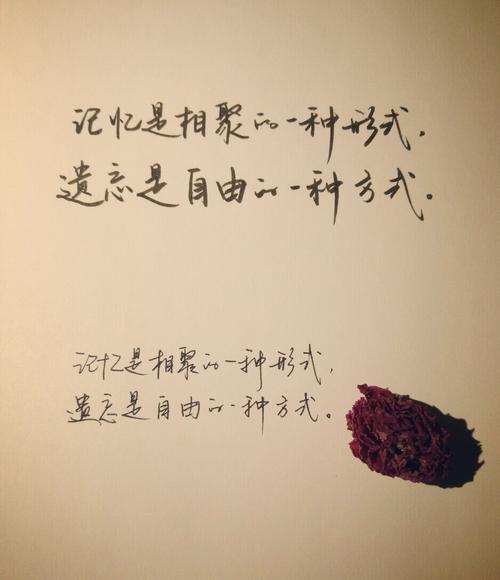 记忆是相聚的一种形式，
遗忘是自由的一种方式。
记忆是相聚的一种形式，
遗忘是自由的一种方式。